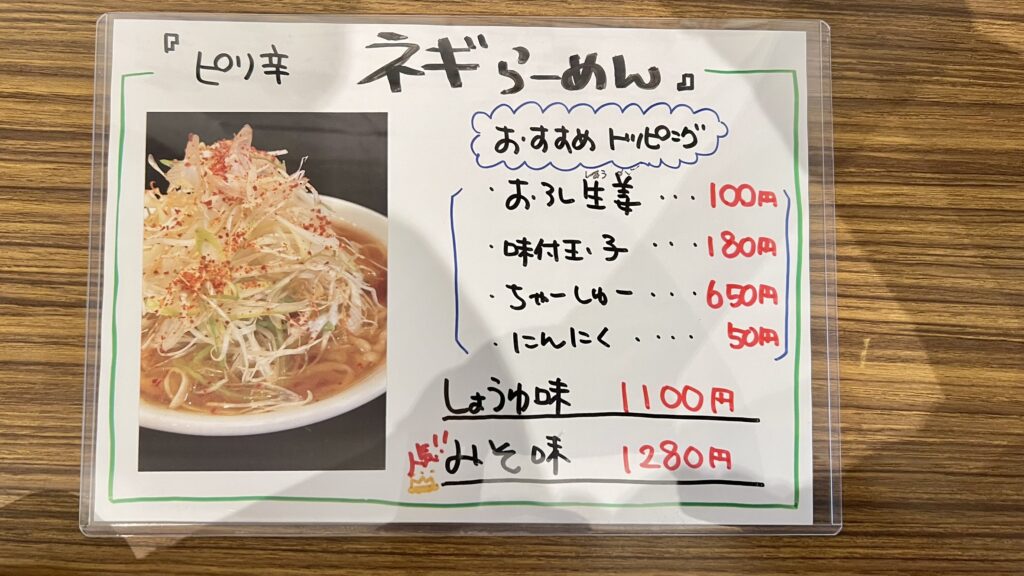 『ピリ辛 ネギらーめん』
おすすめ トッピング
・おろし生姜 ・・・ 100円
しょうが
・味付玉子 ・・・ 180円
・ちゃーしゅー ・・・ 650円
・にんにく ・・・・ 50円
しょうゆ味 1100円
人気!! みそ味 1280円